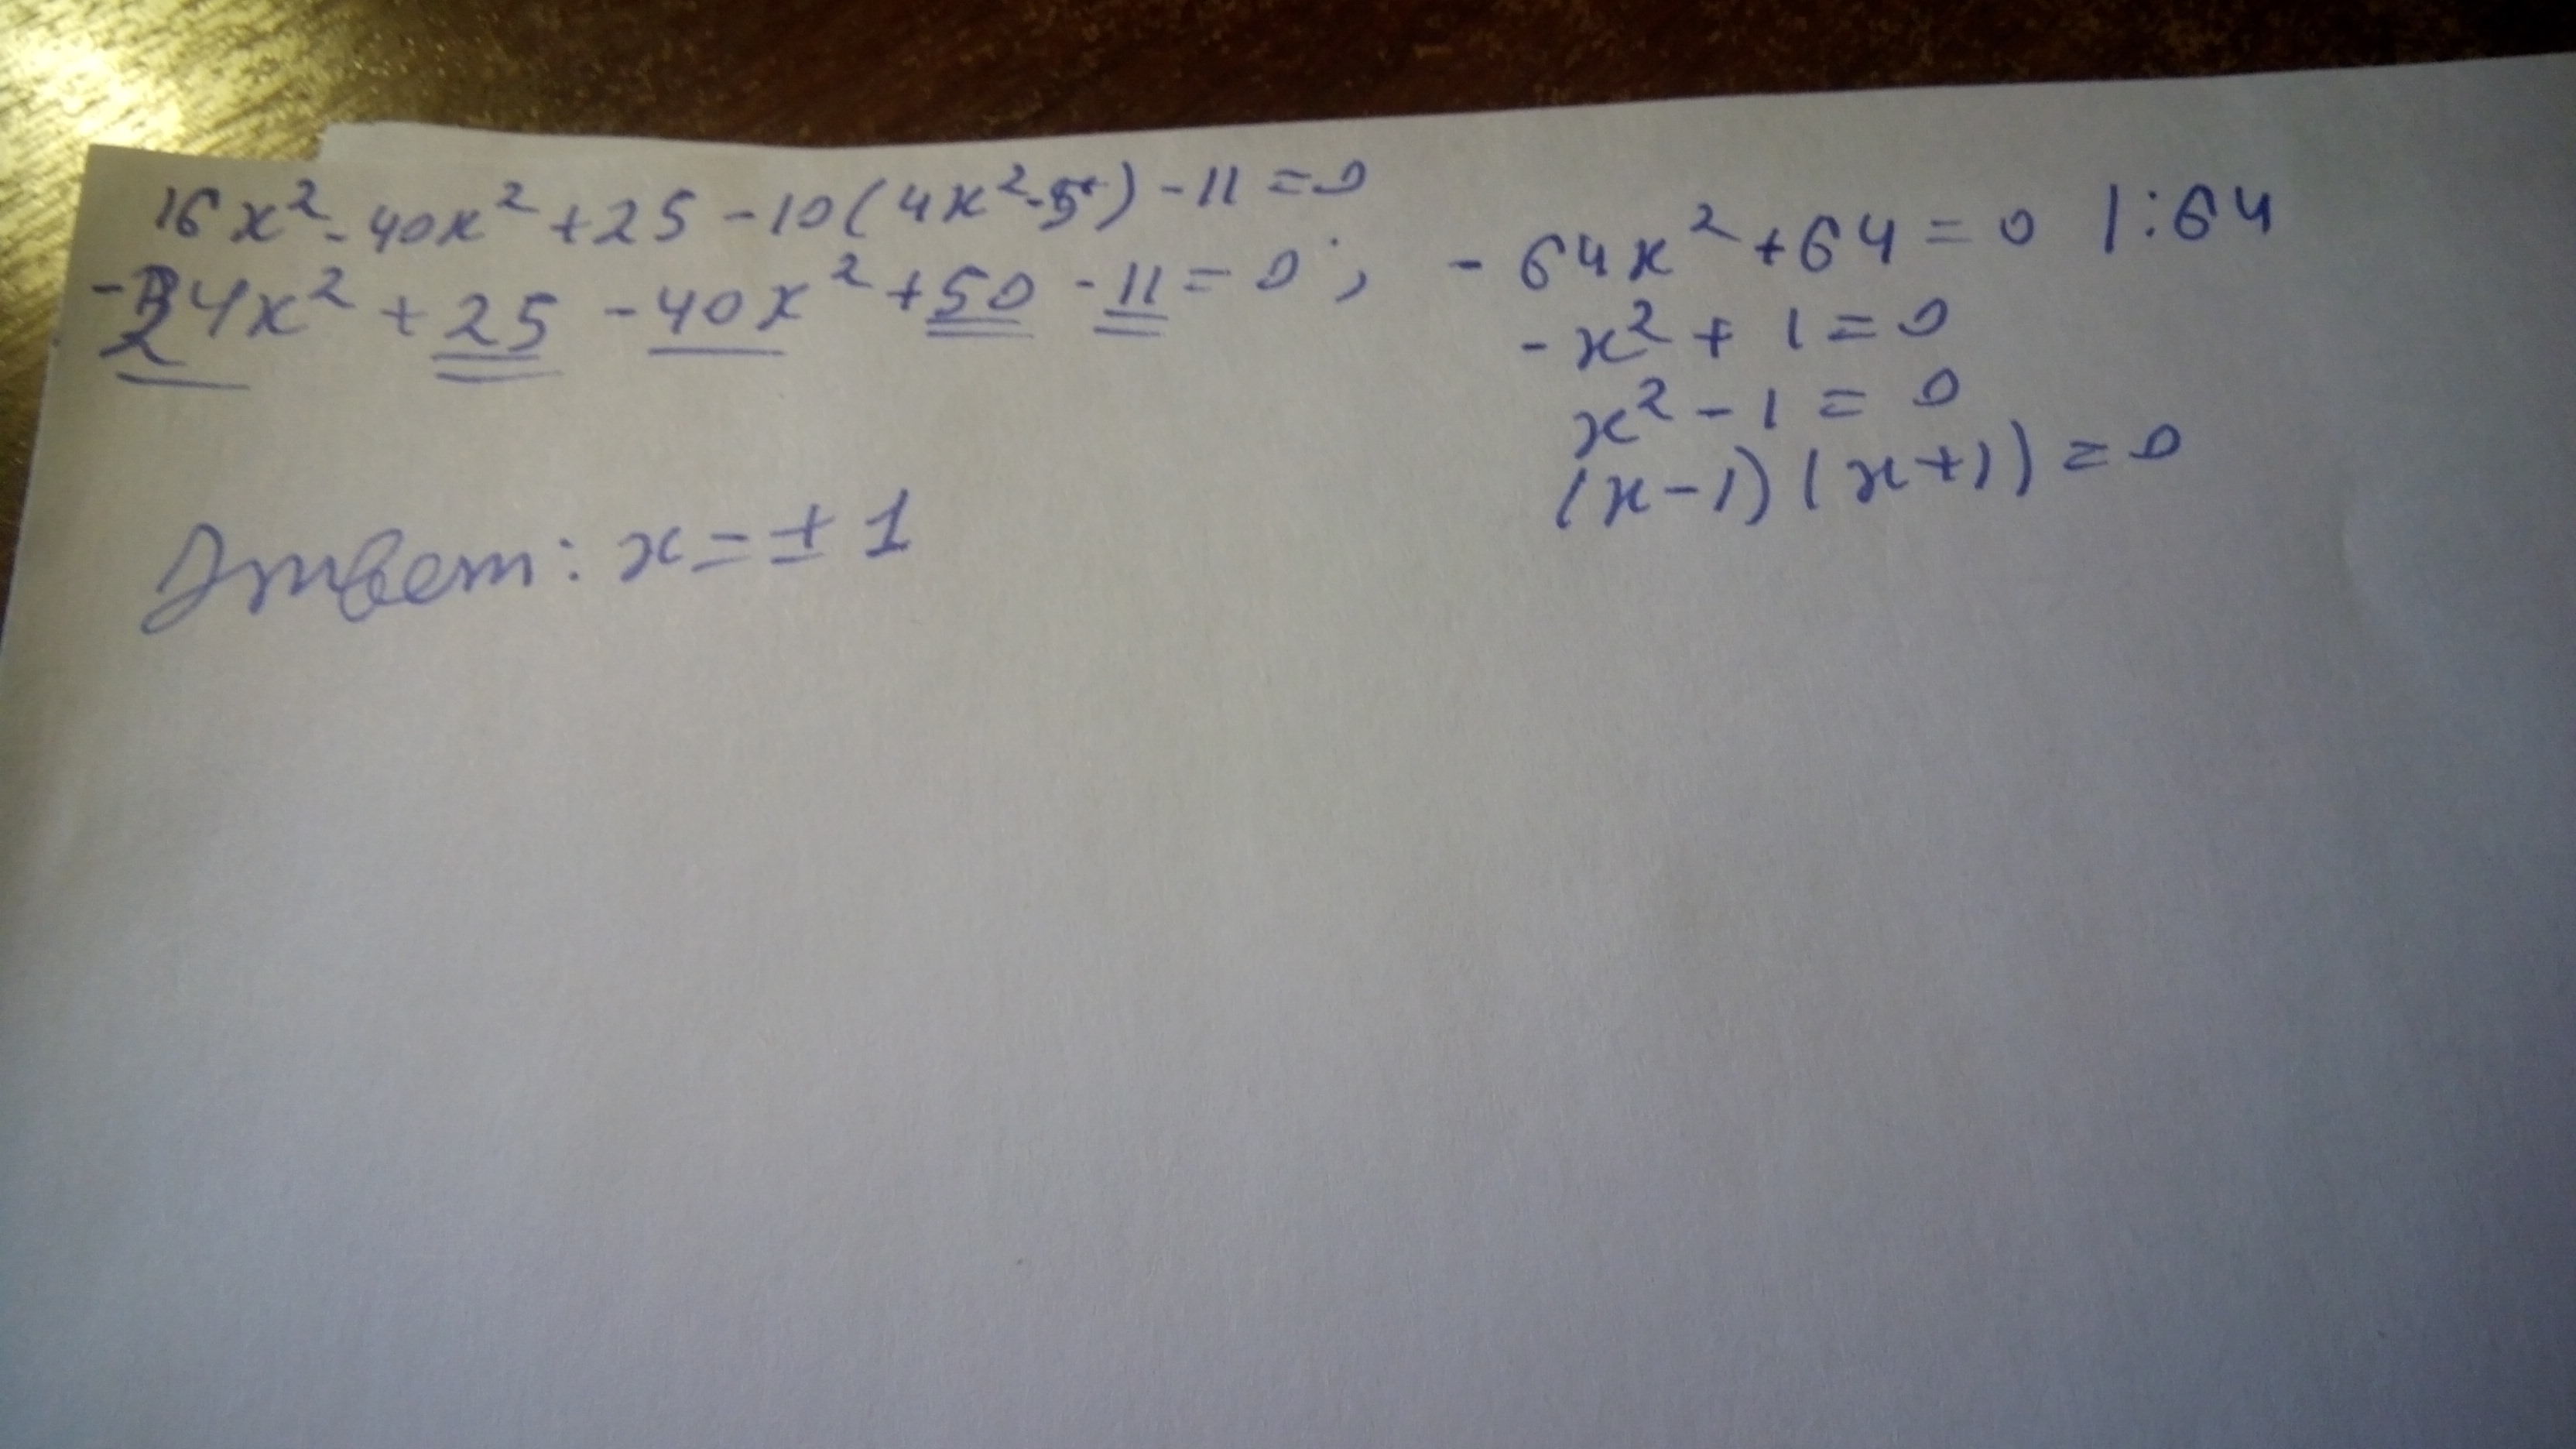 16x² - 40x² + 25 - 10(4x² - 5) - 11 = 0
-24x² + 25 - 40x² + 50 - 11 = 0 ;
- 64x² + 64 = 0 | : 64
- x² + 1 = 0
x² - 1 = 0
(x - 1) (x + 1) = 0
Ответ: x = ± 1